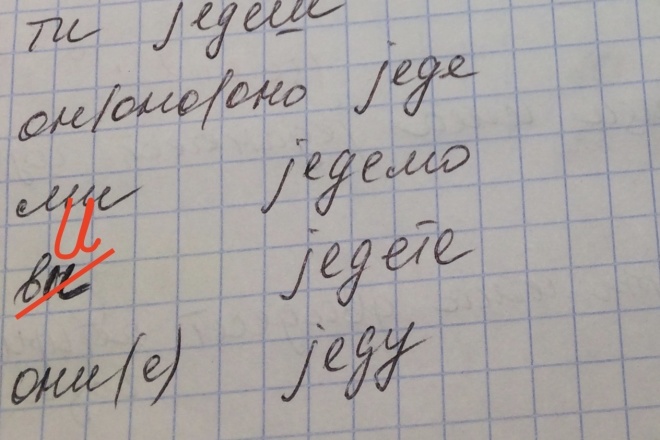 ти једеш
он/оно/оно једе
ми једемо
и
ви једете
они(е) једу